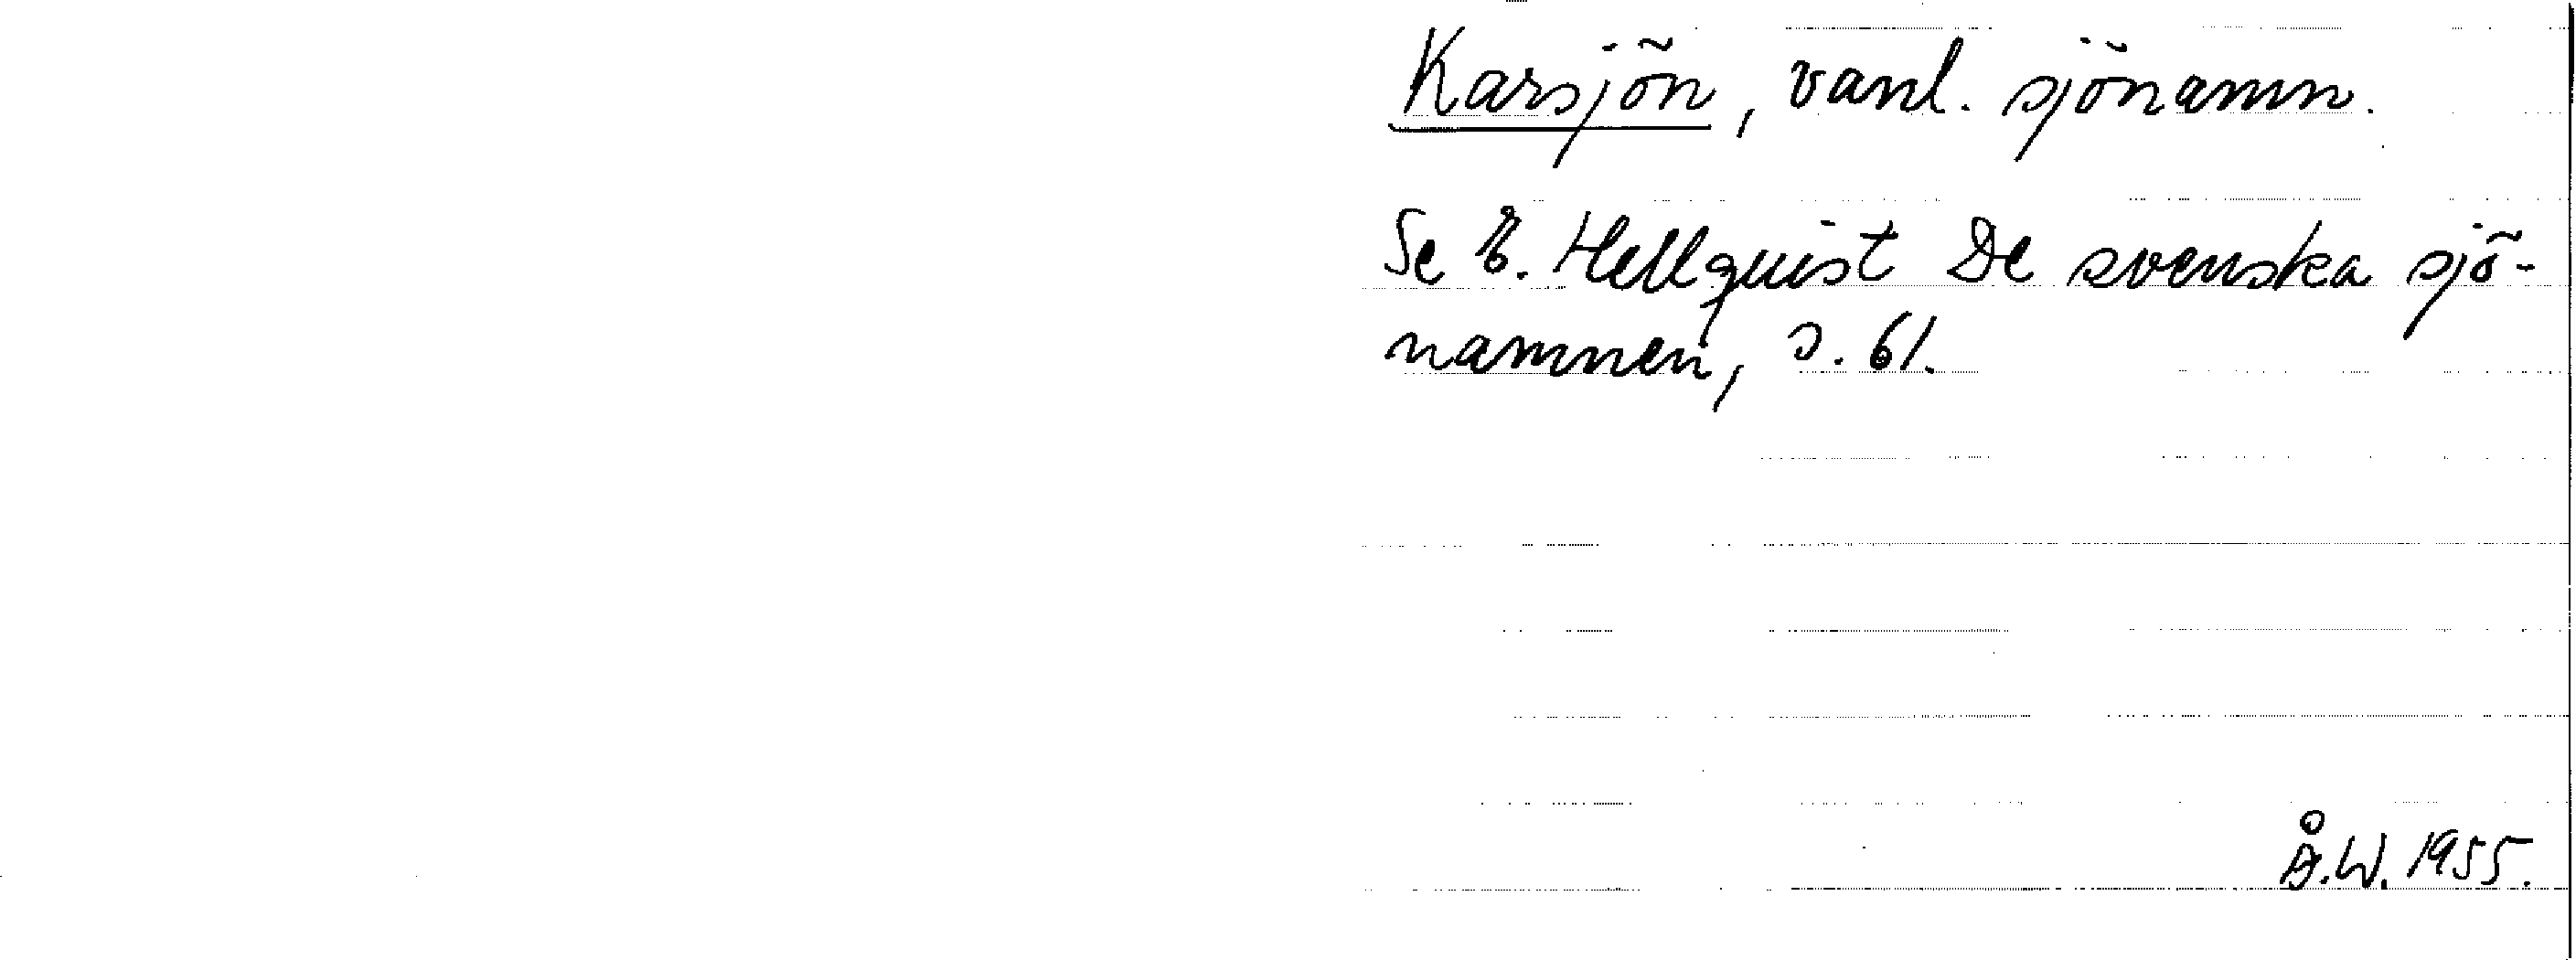 Karsjön, vanl. sjönamn.
Se E. Hellquist De svenska sjö-
namnen, s. 61.
Å.W. 1955.